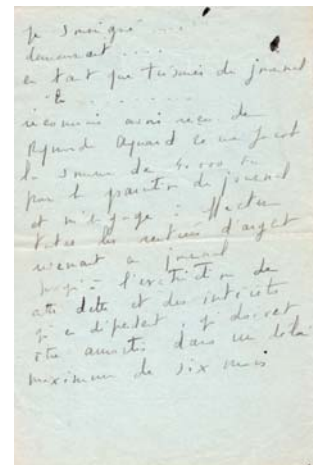 Je soussigné ....
demeurant ....
en tant que trésorier du journal
" L ........
reconnais avoir reçu de
Aymard
la somme de 40.000 frs
pour la parution du journal
et m'engage à affecter
toutes les rentrées d'argent
revenant au journal
jusqu'à l'extinction de
cette dette et des intérêts
qui en dépendent, qui doivent
être amortis dans un délai
maximum de six mois